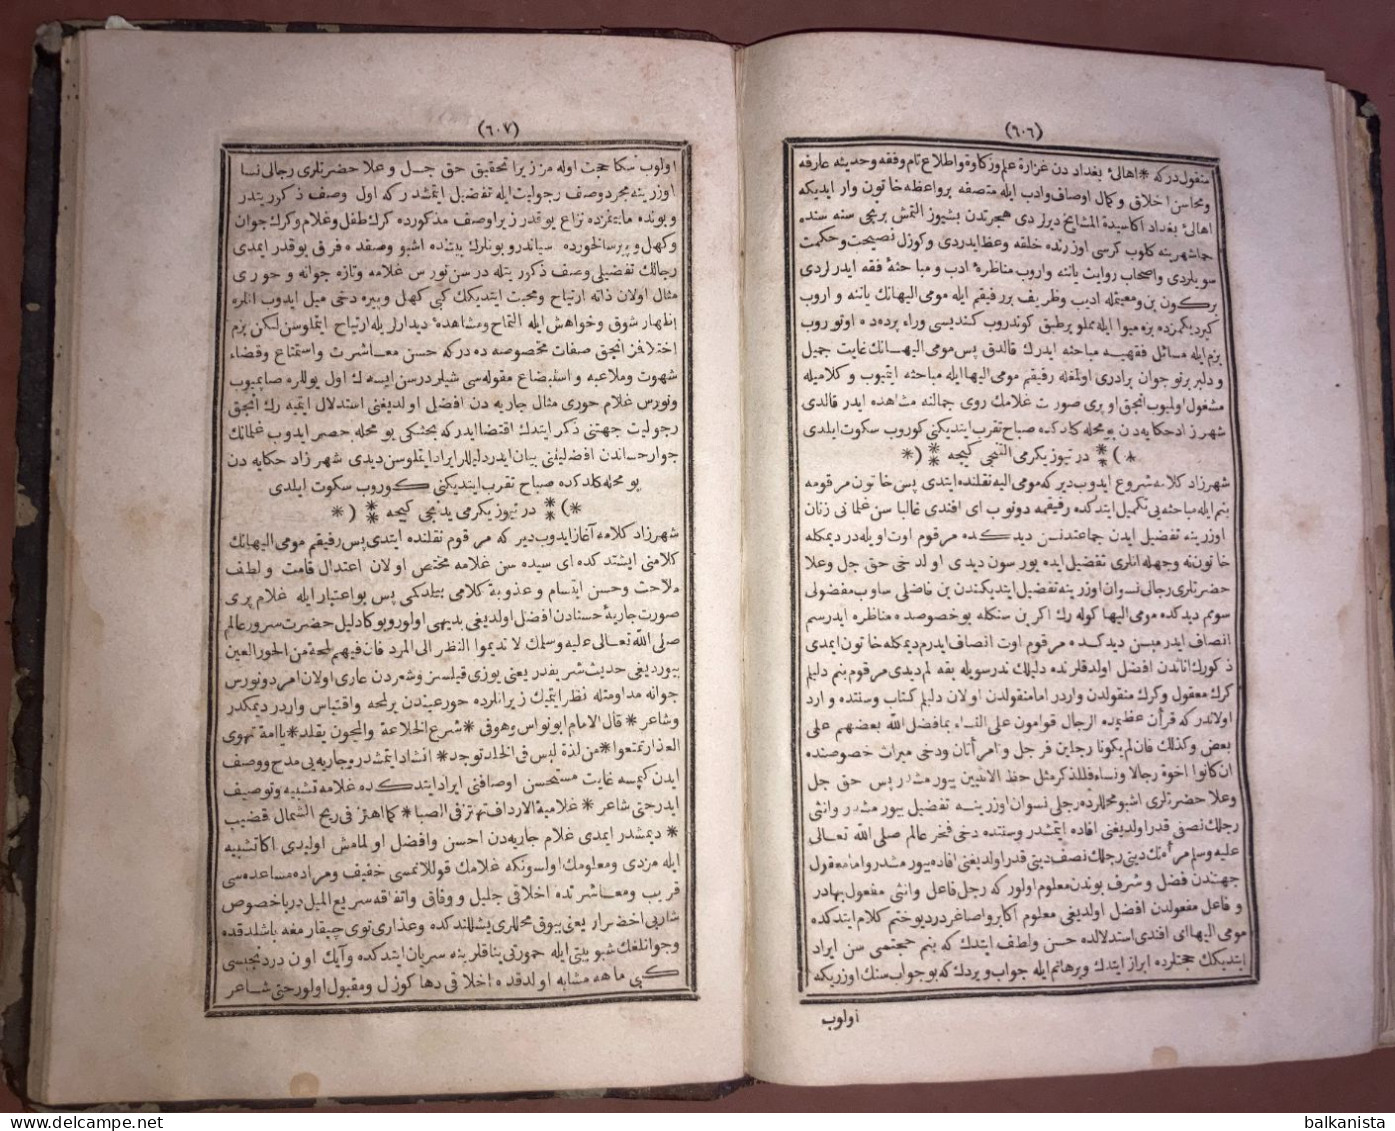 (٦٠٦)
منقولدركه * اهالئ بغداد دن غزارة علم وزكاوة واطلاع تام وفقه وحديثه عارفه
ومحاسن اخلاق وكمال اوصاف وادب ايله متصفه بر واعظه خاتون وار ايديكه
اهالئ بغداد اكا سيدة المشايخ ديرلردى هجرتدن بشيوز التمش برنجى سنه سنده
حما شهرينه كلوب كرسى اوزرنده خلقه وعظ ايدردى وكوزل نصيحت وحكمت
سويلردى واصحاب روايت ياننه واروب مناظرۀ ادب و مباحثۀ فقه ايدرلردى
بركون بن ومعيتمله اديب وظريف بر رفيقم ايله مومى اليهانك ياننه و اروب
كيرديكمزده بزه ميوا ايله مملو بر طبق كوندروب كنديسى وراء پرده ده اوتوروب
بزم ايله مسائل فقهيه مباحثه ايدرك قالدق پس مومى اليهانك غايت جميل
و دلبر برنوجوان برادرى اولمغله رفيقم مومى اليها ايله مباحثه ايتميوب و كلاميله
مشغول اولميوب انجق او پرى صورت غلامك روى جمالنه مشاهده ايدر قالدى
شهرزاد حكايه دن بو محله كلدكده صباح تقرب ايتديكنى كوروب سكوت ايلدى
*) ** درتيوز يكرمى التنجى كيجه ** (*
شهرزاد كلامه شروع ايدوب ديركه مومى اليه نقلنده ايتدى پس خاتون مرقومه
بنم ايله مباحثه يى تكميل ايتدكده رفيقمه دونوب اى افندى غالبا سن غلمانى زنان
اوزرينه تفضيل ايدن جماعتدنسن ديدكده مرقوم اوت اويله در ديمكله
خاتون نه وجهله انلرى تفضيل ايده يورسون ديدى اولدخى حق جل وعلا
حضرتلرى رجالى نسوان اوزرينه تفضيل ايتديكندن بن فاضلى سوب مفضولى
سومم ديدكده مومى اليها كوله رك اكر بن سنكله بو خصوصده مناظره ايدرسم
انصاف ايدرميسن ديدكده مرقوم اوت انصاف ايدرم ديمكله خاتون ايمدى
ذكورك اناثدن افضل اولدقلرنده دليلك ندر سويله بقه لم ديدى مرقوم بنم دليلم
كرك معقول وكرك منقولدن واردر اما منقولدن اولان دليلم كتاب وسنتده وارد
اولاندركه قرآن عظيمده الرجال قوامون على النساء بما فضل الله بعضهم على
بعض وكذلك فان لم يكونا رجلين فرجل وامرأتان ودخى ميراث خصوصنده
ان كانوا اخوة رجالا ونساء فللذكر مثل حظ الانثيين بيورمشدر پس حق جل
وعلا حضرتلرى اشبو محللرده رجلى نسوان اوزرينه تفضيل بيورمشدر وانثى
رجلك نصفى قدر اولديغنى افاده ايتمشدر وسنتده دخى فخر عالم صلى الله تعالى
عليه وسلم مرأه نك ديتى رجلك نصف ديتى قدر اولديغنى افاده بيورمشدر واما معقول
جهتندن فضل و شرف بوندن معلوم اولوركه رجل فاعل وانثى مفعول بهادر
و فاعل مفعولدن افضل اولديغى معلوم اكابر واصاغردر ديو ختم كلام ايتدكده
مومى اليها اى افندى استدلالده حسن ولطف ايتدك كه بنم حجتمى سن ايراد
ايتديكك حجتلرده ابراز ايتدك وبرهانم ايله جواب ويردك كه بو جواب سنك اوزريكه
اولوب
(٦٠٧)
اولوب سكا حجت اوله مز زيرا تحقيق حق جل وعلا حضرتلرى رجالى نسا
اوزرينه مجرد وصف رجوليت ايله تفضيل ايتمشدركه اول وصف ذكوريتدر
و بونده مابينمزده نزاع يوقدر زيرا وصف مذكورده كرك طفل وغلام وكرك جوان
وكهل و پير سالخورده سياندر و بونلرك بيننده اشبو وصفده فرق يوقدر ايمدى
رجالك تفضيلى وصف ذكوريتله در سن نورس غلامه وتازه جوانه و حورى
مثال اولان ذاته ارتياح ومحبت ايتديكك كبى كهل وپيره دخى ميل ايدوب انلره
اظهار شوق وخواهش ايله التماح ومشاهدۀ ديدارلريله ارتياح ايتملوسن لكن بزم
اختلافز انجق صفات مخصوصه ده دركه حسن معاشرت واستمتاع وقضاء
شهوت وملاعبه و استبضاع مقوله سى شيلردر سن ايسه ك اول يوللره صاپميوب
ونورس غلام حورى مثال جاريه دن افضل اولديغنى استدلال ايتميه رك انجق
رجوليت جهتنى ذكر ايتدك اقتضا ايدركه بحثكى بو محله حصر ايدوب غلمانك
جوار حساندن افضليتنى بيان ايدر دليللر ايراد ايتملوسن ديدى شهرزاد حكايه دن
بو محله كلدكده صباح تقرب ايتديكنى كوروب سكوت ايلدى
*) ** درتيوز يكرمى يدنجى كيجه ** (*
شهرزاد كلامه آغاز ايدوب ديركه مرقوم نقلنده ايتدى پس رفيقم مومى اليهانك
كلامنى ايشتدكده اى سيده سن غلامه مختص اولان اعتدال قامت ولطف
ملاحت وحسن ابتسام وعذوبة كلامى بتلدكمى پس بو اعتبار ايله غلام پرى
صورت جاريۀ حسنادن افضل اولديغى بديهى اولور وبوكا دليل حضرت سرور عالم
صلى الله تعالى عليه وسلمك لا تديموا النظر الى المرد فان فيهم لمحة من الحور العين
بيورديغى حديث شريفدر يعنى يوزى قيلسز وشعردن عارى اولان امرد ونورس
جوانه مداومتله نظر ايتميك زيرا انلرده حورعيندن بر لمحه واقتباس واردر ديمكدر
وشاعر * قال الامام ابو نواس وهو فى * شرع الخلاعة والمجون يقلد * يا امة تهوى
العذار تمتعوا * من لذة ليس فى الخلد توجد * انشاد ايتمشدر و جاريه يى مدح ووصف
ايدن كيمسه غايت مستحسن اوصافنى ايراد ايتدكده غلامه تشبيه و توصيف
ايدر حتى شاعر * غلامية الارداف تهتز فى الصبا * كما اهتز فى ريح الشمال قضيب
* ديمشدر ايمدى غلام جاريه دن احسن وافضل اولمامش اولیدى اكا تشبيه
ايله مزدى ومعلومك اولسونكه غلامك قوللانمسى خفيف ومراده مساعده سى
قريب ومعاشرتده اخلاقى جليل و وفاق واتفاقه سريع الميل در با خصوص
شاربى اخضرار يعنى بيوق محللرى يشللندكده وعذارى توى چيقارمغه باشلدقده
وجوانلغك شبوبيتى ايله حمورتى يناقلرينه سريان ايتدكده وآيك اون دردنجيسى
كبى ماهه مشابه اولدقده اخلاقى دها كوزل ومقبول اولور حتى شاعر
balkanista